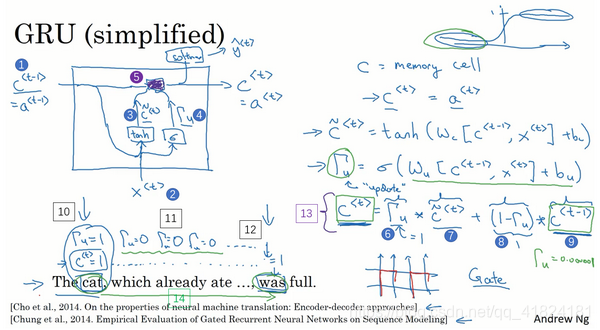 GRU (simplified)
softmax
ŷ<t>
1
c<t-1>
= a<t-1>
5
c<t>
= a<t>
3
c̃<t>
Γu
4
tanh
σ
x<t>
2
C = memory cell
→ c<t> = a<t>
→ c̃<t> = tanh(Wc[c<t-1>, x<t>] + bc)
→ Γu = σ(Wu[c<t-1>, x<t>] + bu)
"update"
13
c<t> = Γu * c̃<t> + (1-Γu) * c<t-1>
6
7
8
9
= 1
Γu = 0.000001
Gate
10
11
12
Γu=1
Γu=0 Γu=0 Γu=0 ....
c<t>=1
= 1
→ The cat, which already ate ..., was full.
14
[Cho et al., 2014. On the properties of neural machine translation: Encoder-decoder approaches] ←
[Chung et al., 2014. Empirical Evaluation of Gated Recurrent Neural Networks on Sequence Modeling] ←
Andrew Ng